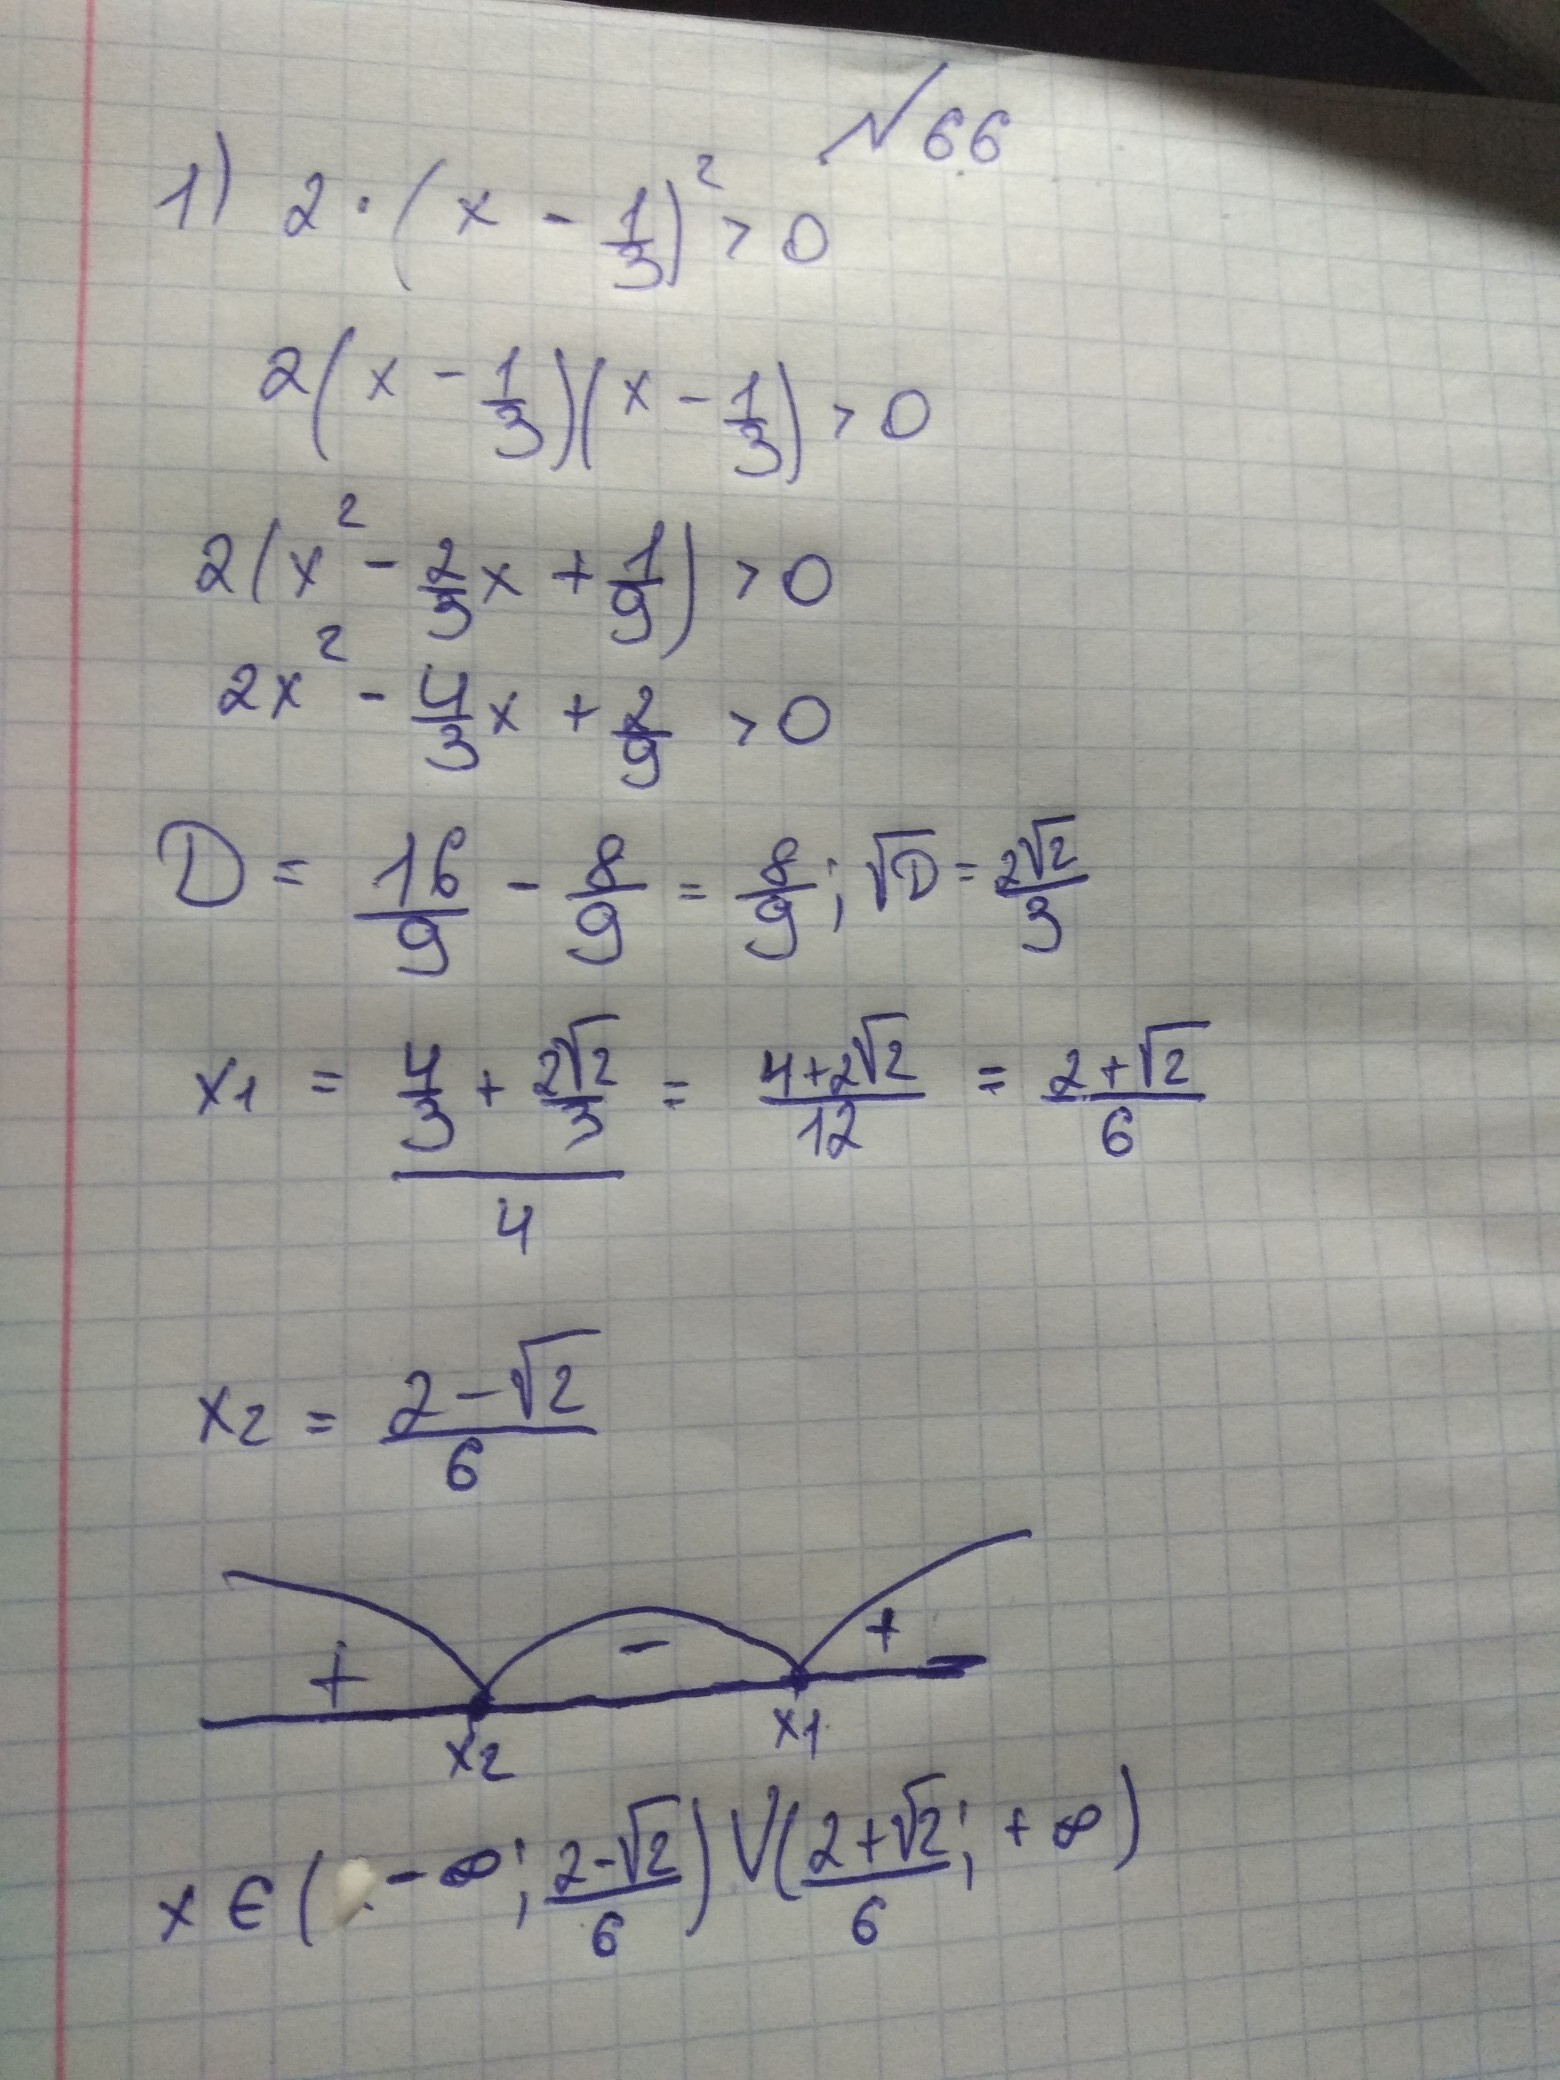 № 66
1) 2 · (x - 1/3)² > 0
2(x - 1/3)(x - 1/3) > 0
2(x² - 2/3 x + 1/9) > 0
2x² - 4/3 x + 2/9 > 0
D = 16/9 - 8/9 = 8/9; √D = 2√2/3
x1 = (4/3 + 2√2/3)/4 = (4+2√2)/12 = (2+√2)/6
x2 = (2-√2)/6
+ - +
x2 x1
x ∈ (-∞; (2-√2)/6) V ((2+√2)/6; +∞)